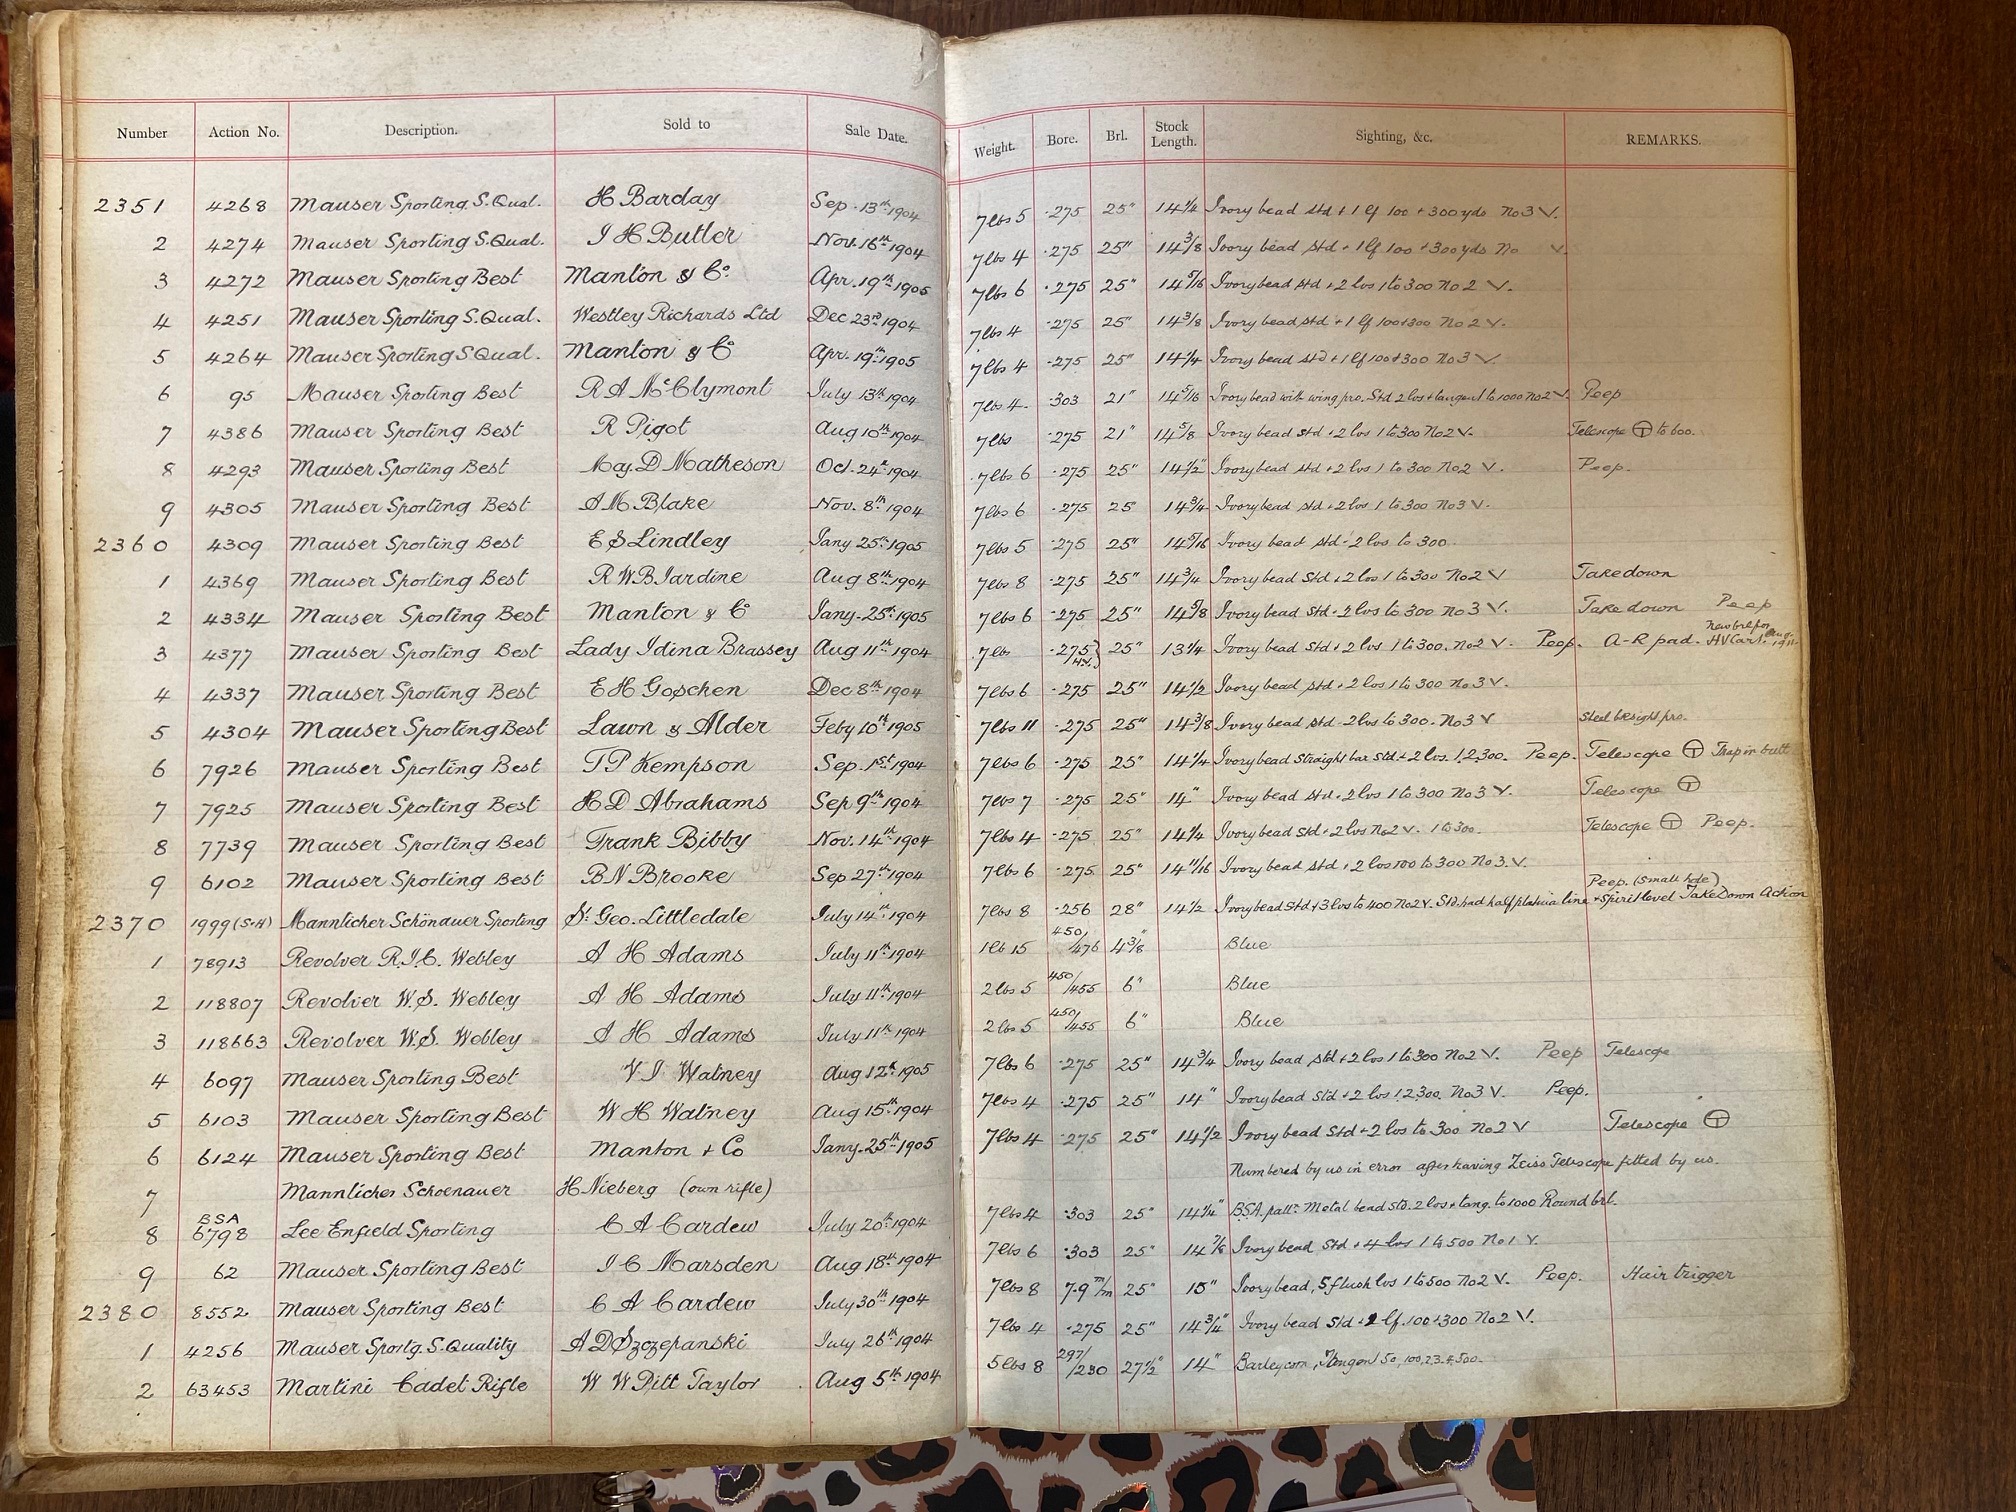 Number Action No. Description. Sold to Sale Date. Weight. Bore. Brl. Stock Length. Sighting, &c. REMARKS.
2351 4268 Mauser Sporting S. Qual. H Barclay Sep. 13th 1904 7lbs 5 .275 25" 14 1/4 Ivory bead std + 1 lf 100 + 300 yds No 3 V.
2 4274 Mauser Sporting S. Qual. I H Butler Nov. 16th 1904 7lbs 4 .275 25" 14 3/8 Ivory bead std + 1 lf 100 + 300 yds No V.
3 4272 Mauser Sporting Best Manton & Co Apr. 19th 1905 7lbs 6 .275 25" 14 5/16 Ivory bead std + 2 lvs 1 to 300 No 2 V.
4 4251 Mauser Sporting S. Qual. Westley Richards Ltd Dec 23rd 1904 7lbs 4 .275 25" 14 3/8 Ivory bead std + 1 lf 100 + 300 No 2 V.
5 4264 Mauser Sporting S Qual. Manton & Co Apr. 19th 1905 7lbs 4 .275 25" 14 1/4 Ivory bead std + 1 lf 100 + 300 No 3 V.
6 95 Mauser Sporting Best R A McClymont July 13th 1904 7lbs 4. .303 21" 14 5/16 Ivory bead with wing pro. Std 2 lvs + tangent to 1000 No 2 V. Peep
7 4386 Mauser Sporting Best R Pigot Aug 10th 1904 7lbs .275 21" 14 5/8 Ivory bead std + 2 lvs 1 to 300 No 2 V. Telescope to 600.
8 4293 Mauser Sporting Best Maj. D Matheson Oct. 24th 1904 7lbs 6 .275 25" 14 1/2" Ivory bead std + 2 lvs 1 to 300 No 2 V. Peep.
9 4305 Mauser Sporting Best A M Blake Nov. 8th 1904 7lbs 6 .275 25" 14 3/4 Ivory bead std + 2 lvs 1 to 300 No 3 V.
2360 4309 Mauser Sporting Best E S Lindley Jany 25th 1905 7lbs 5 .275 25" 14 5/16 Ivory bead std + 2 lvs to 300.
1 4369 Mauser Sporting Best R W B Jardine Aug 8th 1904 7lbs 8 .275 25" 14 3/4 Ivory bead Std + 2 lvs 1 to 300 No 2 V Takedown
2 4334 Mauser Sporting Best Manton & Co Jany. 25th 1905 7lbs 6 .275 25" 14 5/8 Ivory bead Std + 2 lvs to 300 No 3 V. Take down Peep
3 4377 Mauser Sporting Best Lady Idina Brassey Aug 11th 1904 7lbs .275/H.V. 25" 13 1/4 Ivory bead Std + 2 lvs 1 to 300. No 2 V. Peep. A-R pad. New brl for HV Cart.
4 4337 Mauser Sporting Best E H Goschen Dec 8th 1904 7lbs 6 .275 25" 14 1/2 Ivory bead std + 2 lvs 1 to 300 No 3 V.
5 4304 Mauser Sporting Best Lawn & Alder Feby 10th 1905 7lbs 11 .275 25" 14 3/8 Ivory bead std 2 lvs to 300. No 3 V Steel bksight pro.
6 7926 Mauser Sporting Best T P Kempson Sep. 1st 1904 7lbs 6 .275 25" 14 1/4 Ivory bead Straight bar std. + 2 lvs. 1,2,300. Peep. Telescope Trap in butt
7 7925 Mauser Sporting Best H D Abrahams Sep 9th 1904 7lbs 7 .275 25" 14" Ivory bead std + 2 lvs 1 to 300 No 3 V. Telescope
8 7739 Mauser Sporting Best Frank Bibby Nov. 14th 1904 7lbs 4 .275 25" 14 1/4 Ivory bead std + 2 lvs No 2 V. 1 to 300. Telescope Peep.
9 6102 Mauser Sporting Best B N Brooke Sep 27th 1904 7lbs 6 .275 25" 14 11/16 Ivory bead std + 2 lvs 100 to 300 No 3. V.
2370 1999 (S+H) Mannlicher Schönauer Sporting St. Geo. Littledale July 14th 1904 7lbs 8 .256 28" 14 1/2 Ivory bead Std + 3 lvs to 400 No 2 V. Std. had half platina line + spirit level Peep. (small hole) Take Down Action
1 78913 Revolver R.I.C. Webley A H Adams July 11th 1904 1lb 15 450/476 4 3/8" Blue
2 118807 Revolver W.S. Webley A H Adams July 11th 1904 2lbs 5 450/455 6" Blue
3 118663 Revolver W.S. Webley A H Adams July 11th 1904 2lbs 5 450/455 6" Blue
4 6097 Mauser Sporting Best V J Watney Aug 12th 1905 7lbs 6 .275 25" 14 3/4 Ivory bead std + 2 lvs 1 to 300 No 2 V. Peep Telescope
5 6103 Mauser Sporting Best W H Watney Aug 15th 1904 7lbs 4 .275 25" 14" Ivory bead Std + 2 lvs 1,2,300. No 3 V. Peep.
6 6124 Mauser Sporting Best Manton + Co Jany. 25th 1905 7lbs 4 .275 25" 14 1/2 Ivory bead Std + 2 lvs to 300 No 2 V Telescope
7 Mannlicher Schoenauer H Nieberg (own rifle) Numbered by us in error after having Zeiss Telescope fitted by us.
8 BSA 6798 Lee Enfield Sporting C A Cardew July 20th 1904 7lbs 4 .303 25" 14 1/4" BSA. pattn. Metal bead std. 2 lvs + tang. to 1000 Round brl.
9 62 Mauser Sporting Best I C Marsden Aug 18th 1904 7lbs 6 .303 25" 14 7/8 Ivory bead, Std + 4 lvs 1 to 500 No 1 V.
2380 8552 Mauser Sporting Best C A Cardew July 30th 1904 7lbs 8 7.9 m/m 25" 15" Ivory bead, 5 flush lvs 1 to 500 No 2 V. Peep. Hair trigger
1 4256 Mauser Sportg. S. Quality A D Szczepanski July 26th 1904 7lbs 4 .275 25" 14 3/4" Ivory bead Std + 1 lf. 100 + 300 No 2 V.
2 63453 Martini Cadet Rifle W W Pitt Taylor Aug 5th 1904 5lbs 8 297/230 27 1/2" 14" Barleycorn, Tangent 50, 100, 2.3.4, 500.